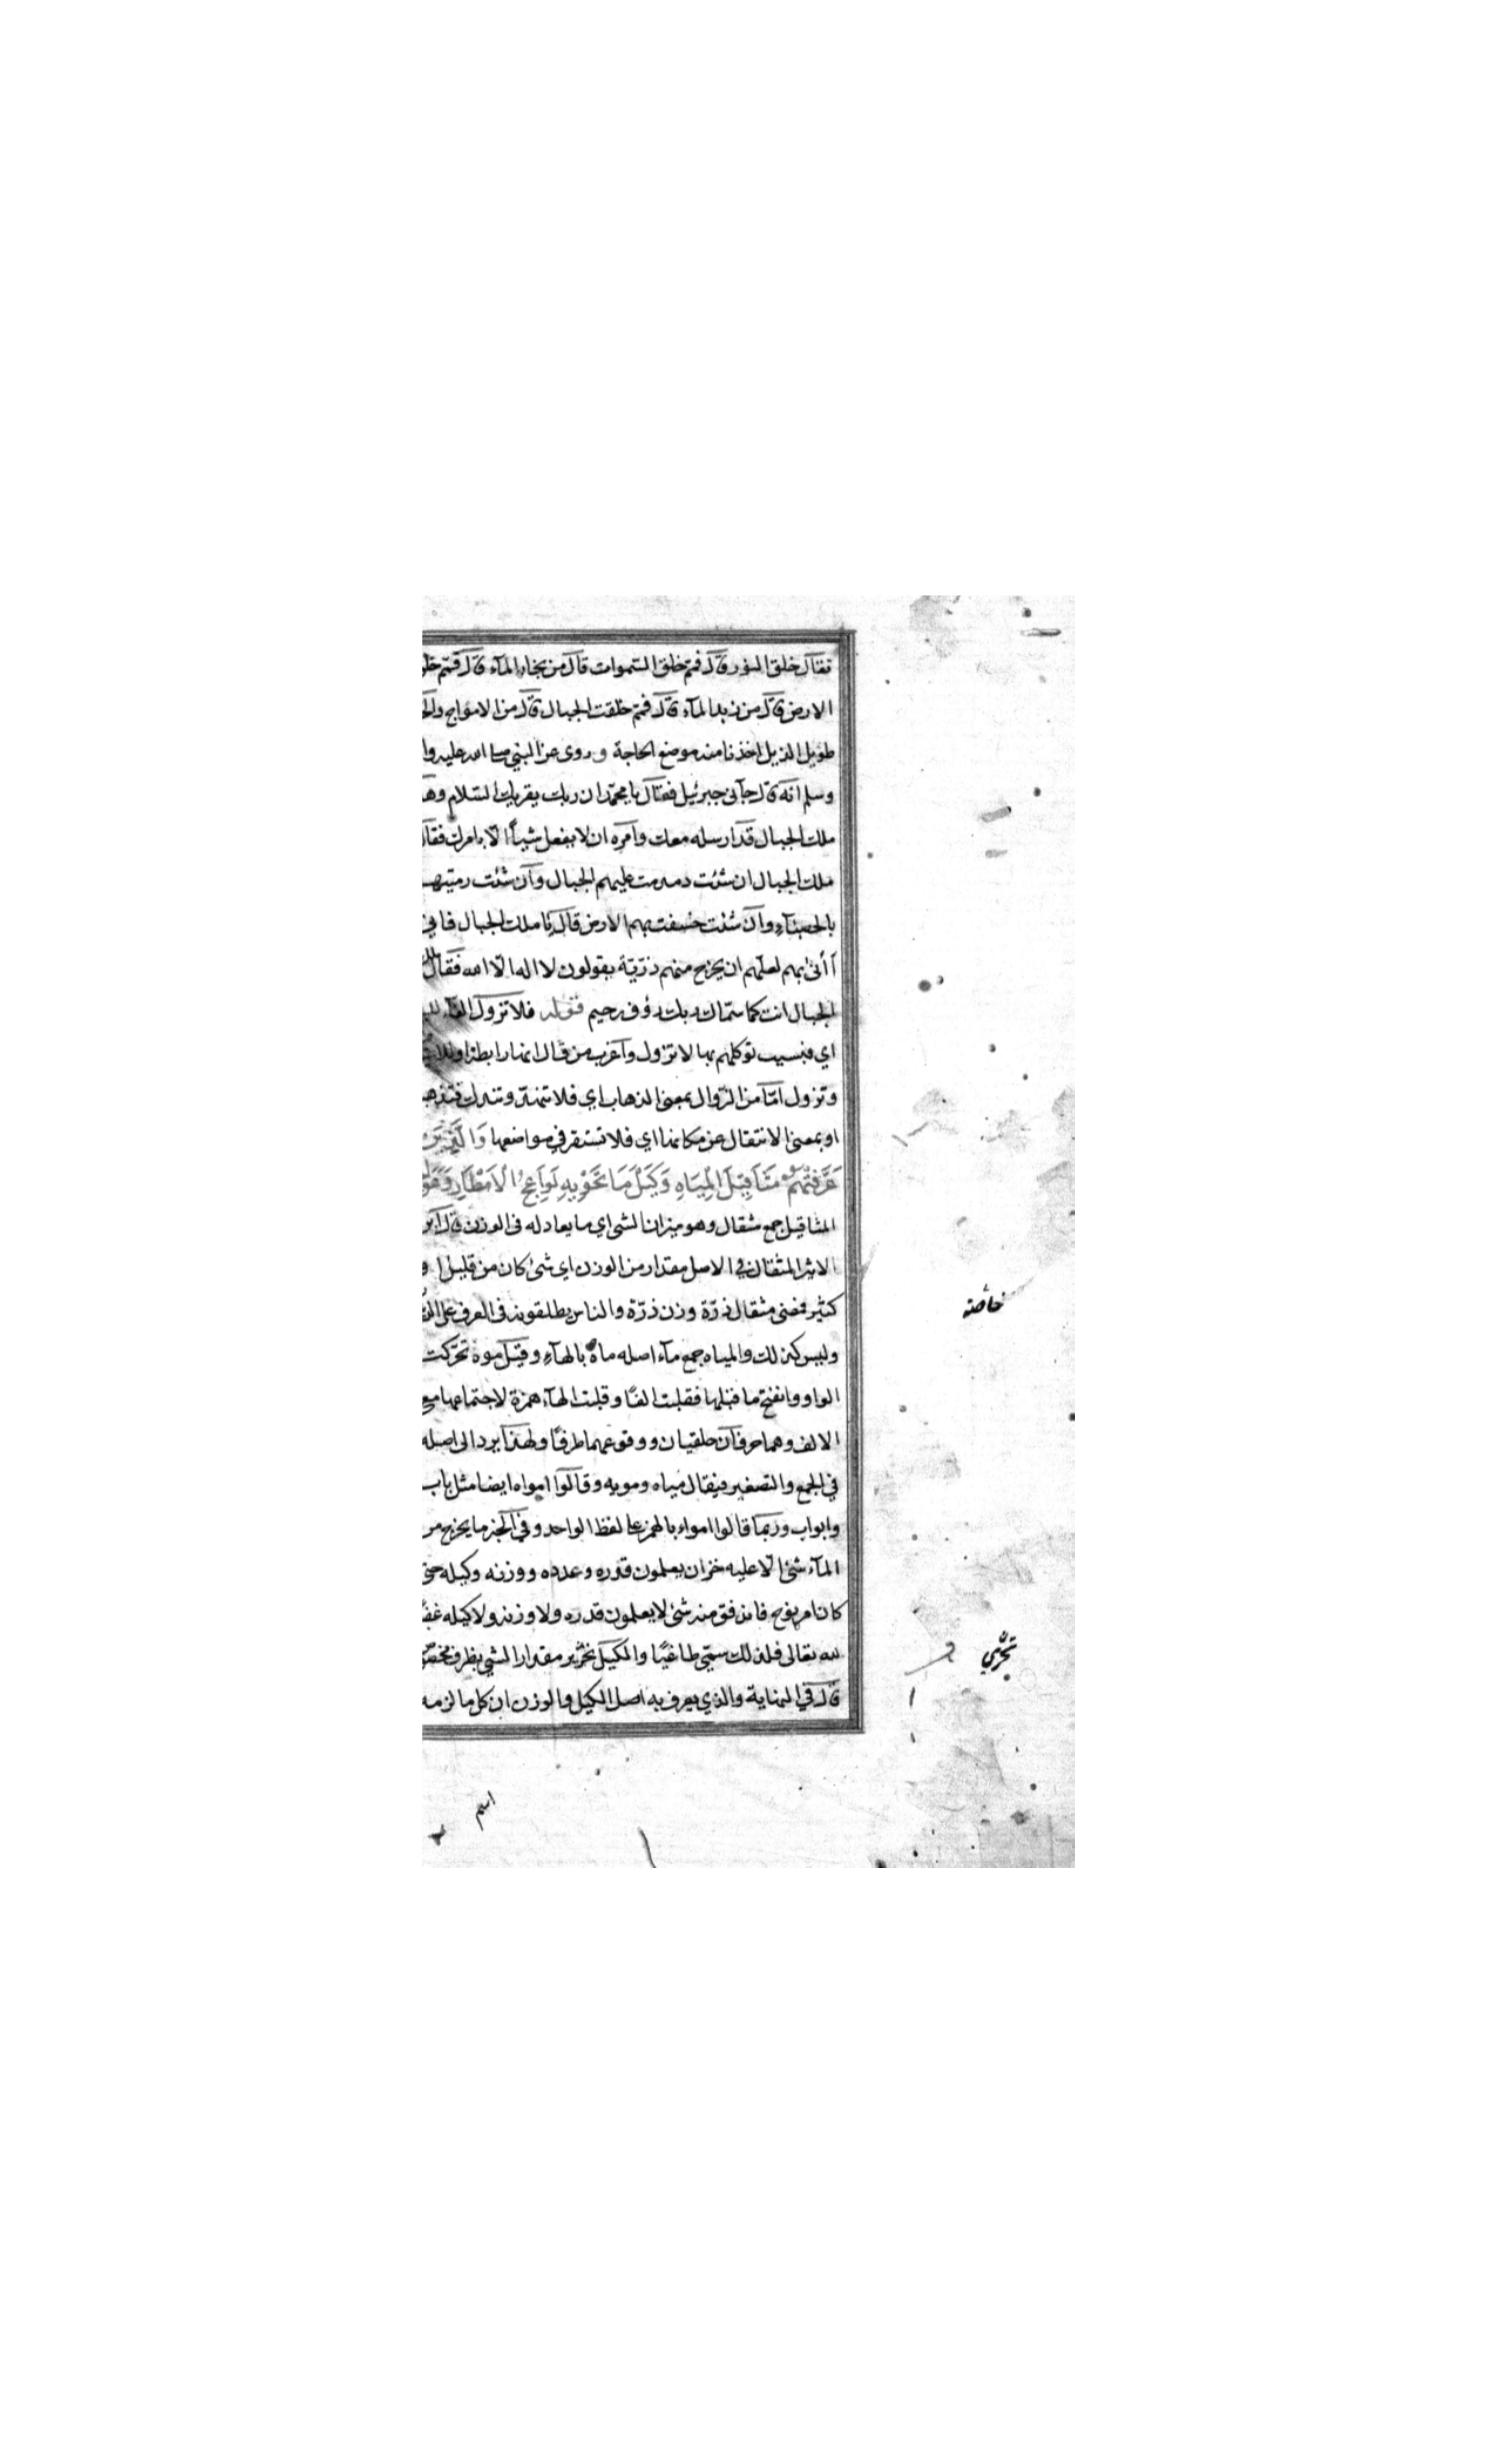 فقال خلق النور قال فمم خلق السموات قال من بخار المآء قال فمم
الارض قال من زبد المآء قال فمم خلقت الجبال قال من الامواج
طويل الذيل اخذنا منه موضع الحاجة وروى عن النبي صلى الله عليه
وسلم انه قال جآئني جبرئيل فقال يا محمد ان ربك يقرئك السلام
ملك الجبال قد ارسله معك وامره ان لا يفعل شيئاً الّا بامرك
ملك الجبال ان شئت دمدمت عليهم الجبال وان شئت
بالحصبآء وان شئت خسفت بهم الارض قال يا ملك الجبال
بهم لعلهم ان يخرج منهم ذرّيّة يقولون لا اله الّا الله فقال
الجبال انت كما سمّاك ربك رؤف رحيم قوله فلا تزول
اي فبسبب توكلهم بها لا تزول واغرب من قال انها رابطة
وتزول امّا من الزوال بمعنى الذهاب اي فلا
او بمعنى الانتقال عن مكانها اي فلا تستقر في مواضعها
عَرَّفْتَهُمْ مَثَاقِيلَ الْمِيَاهِ وَكَيْلَ مَا تَحْوِيهِ لَوَاعِجُ الْاَمْطَارِ
المثاقيل جمع مثقال وهو ميزان الشئ اي ما يعادله فى الوزن قال
الاثير المثقال في الاصل مقدار من الوزن اي شئ كان من قليل
كثير فمعنى مثقال ذرّة وزن ذرّة والناس يطلقونه فى العرف على
وليس كذلك والمياه جمع مآء اصله ماه بالهآء وقيل موه تحرّكت
الواو وانفتح ما قبلها فقلبت الفًا وقلبت الهآء همزة لاجتماعها مع
الالف وهما حرفان حلقيان ووقوعهما طرفًا ولهذا يرد الى اصله
في الجمع والتصغير فيقال مياه ومويه وقالوا امواه ايضا مثل باب
وابواب وربما قالوا امواء بالهمز على لفظ الواحد وفي الخبر ما يخرج من
المآء شئ الّا عليه خزان يعلمون قدره وعدده ووزنه وكيله
كان امر نوح فاندفق منه شئ لا يعلمون قدره ولا وزنه ولا كيله
لله تعالى فلذلك سمّي طاغيًا والكيل تحرير مقدار الشئ بظرف
قال في النهاية والذي يعرف به اصل الكيل والوزن ان كل ما لزمه
خاصّة
تحرّي
اسم